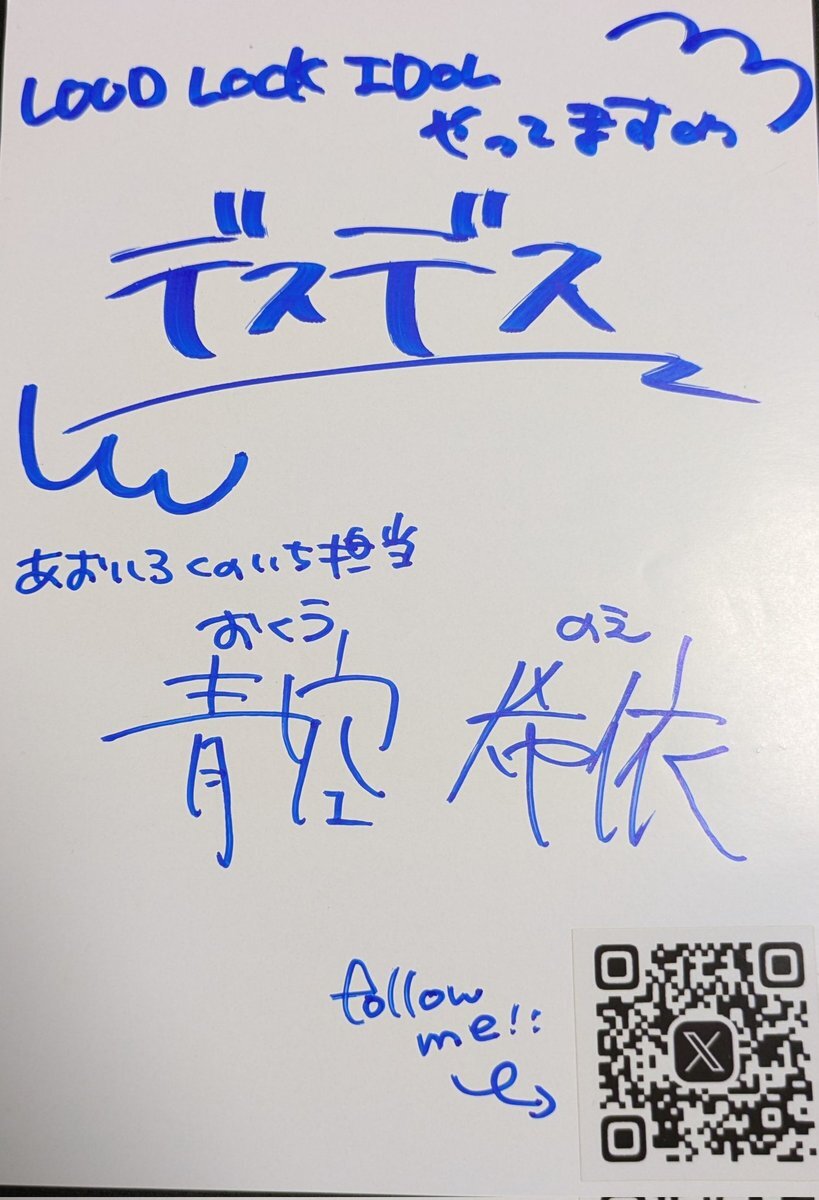 LOUD LOCK IDOL
やってますの
デスデス
あおいろくのいち担当
おくう のえ
青空 希依
follow
me!!
X